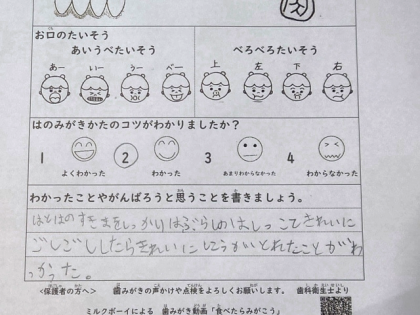 お口のたいそう
あいうべたいそう べろべろたいそう
あー いー うー べー 上 左 下 右
はのみがきかたのコツがわかりましたか?
1 2 3 4
よくわかった わかった あまりわからなかった わからなかった
わかったことやがんばろうと思うことを書きましょう。
はとはのすきまをしっかりはぶらしのはしっこできれいに
ごしごししたらきれいにしこうがとれたことがわ
かった。
<保護者の方へ> 歯みがきの声かけや点検をよろしくお願いします。 歯科衛生士より
ミルクボーイによる 歯みがき動画「食べたらみがこう」